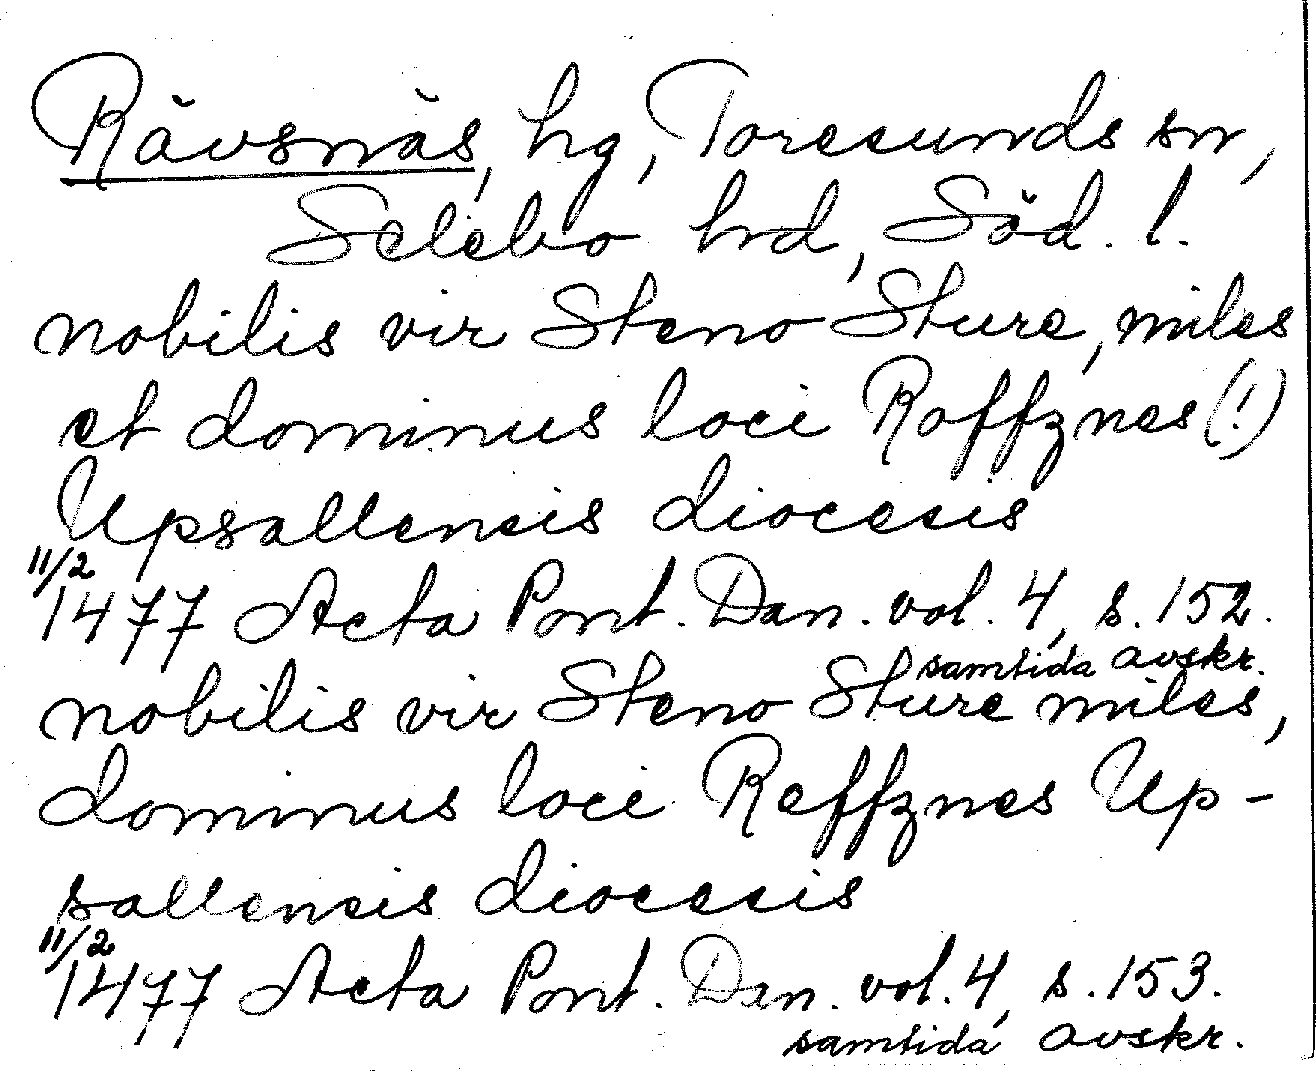 Rävsnäs, hg, Toresunds sn,
Selebo hrd, Söd. l.
nobilis vir Steno Sture, miles
et dominus loci Roffznes (!)
Upsallensis diocesis
11/2
1477 Acta Pont. Dan. vol. 4, s. 152.
samtida avskr.
nobilis vir Steno Sture miles,
dominus loci Reffznes Up-
sallensis diocesis
11/2
1477 Acta Pont. Dan. vol. 4, s. 153.
samtida avskr.